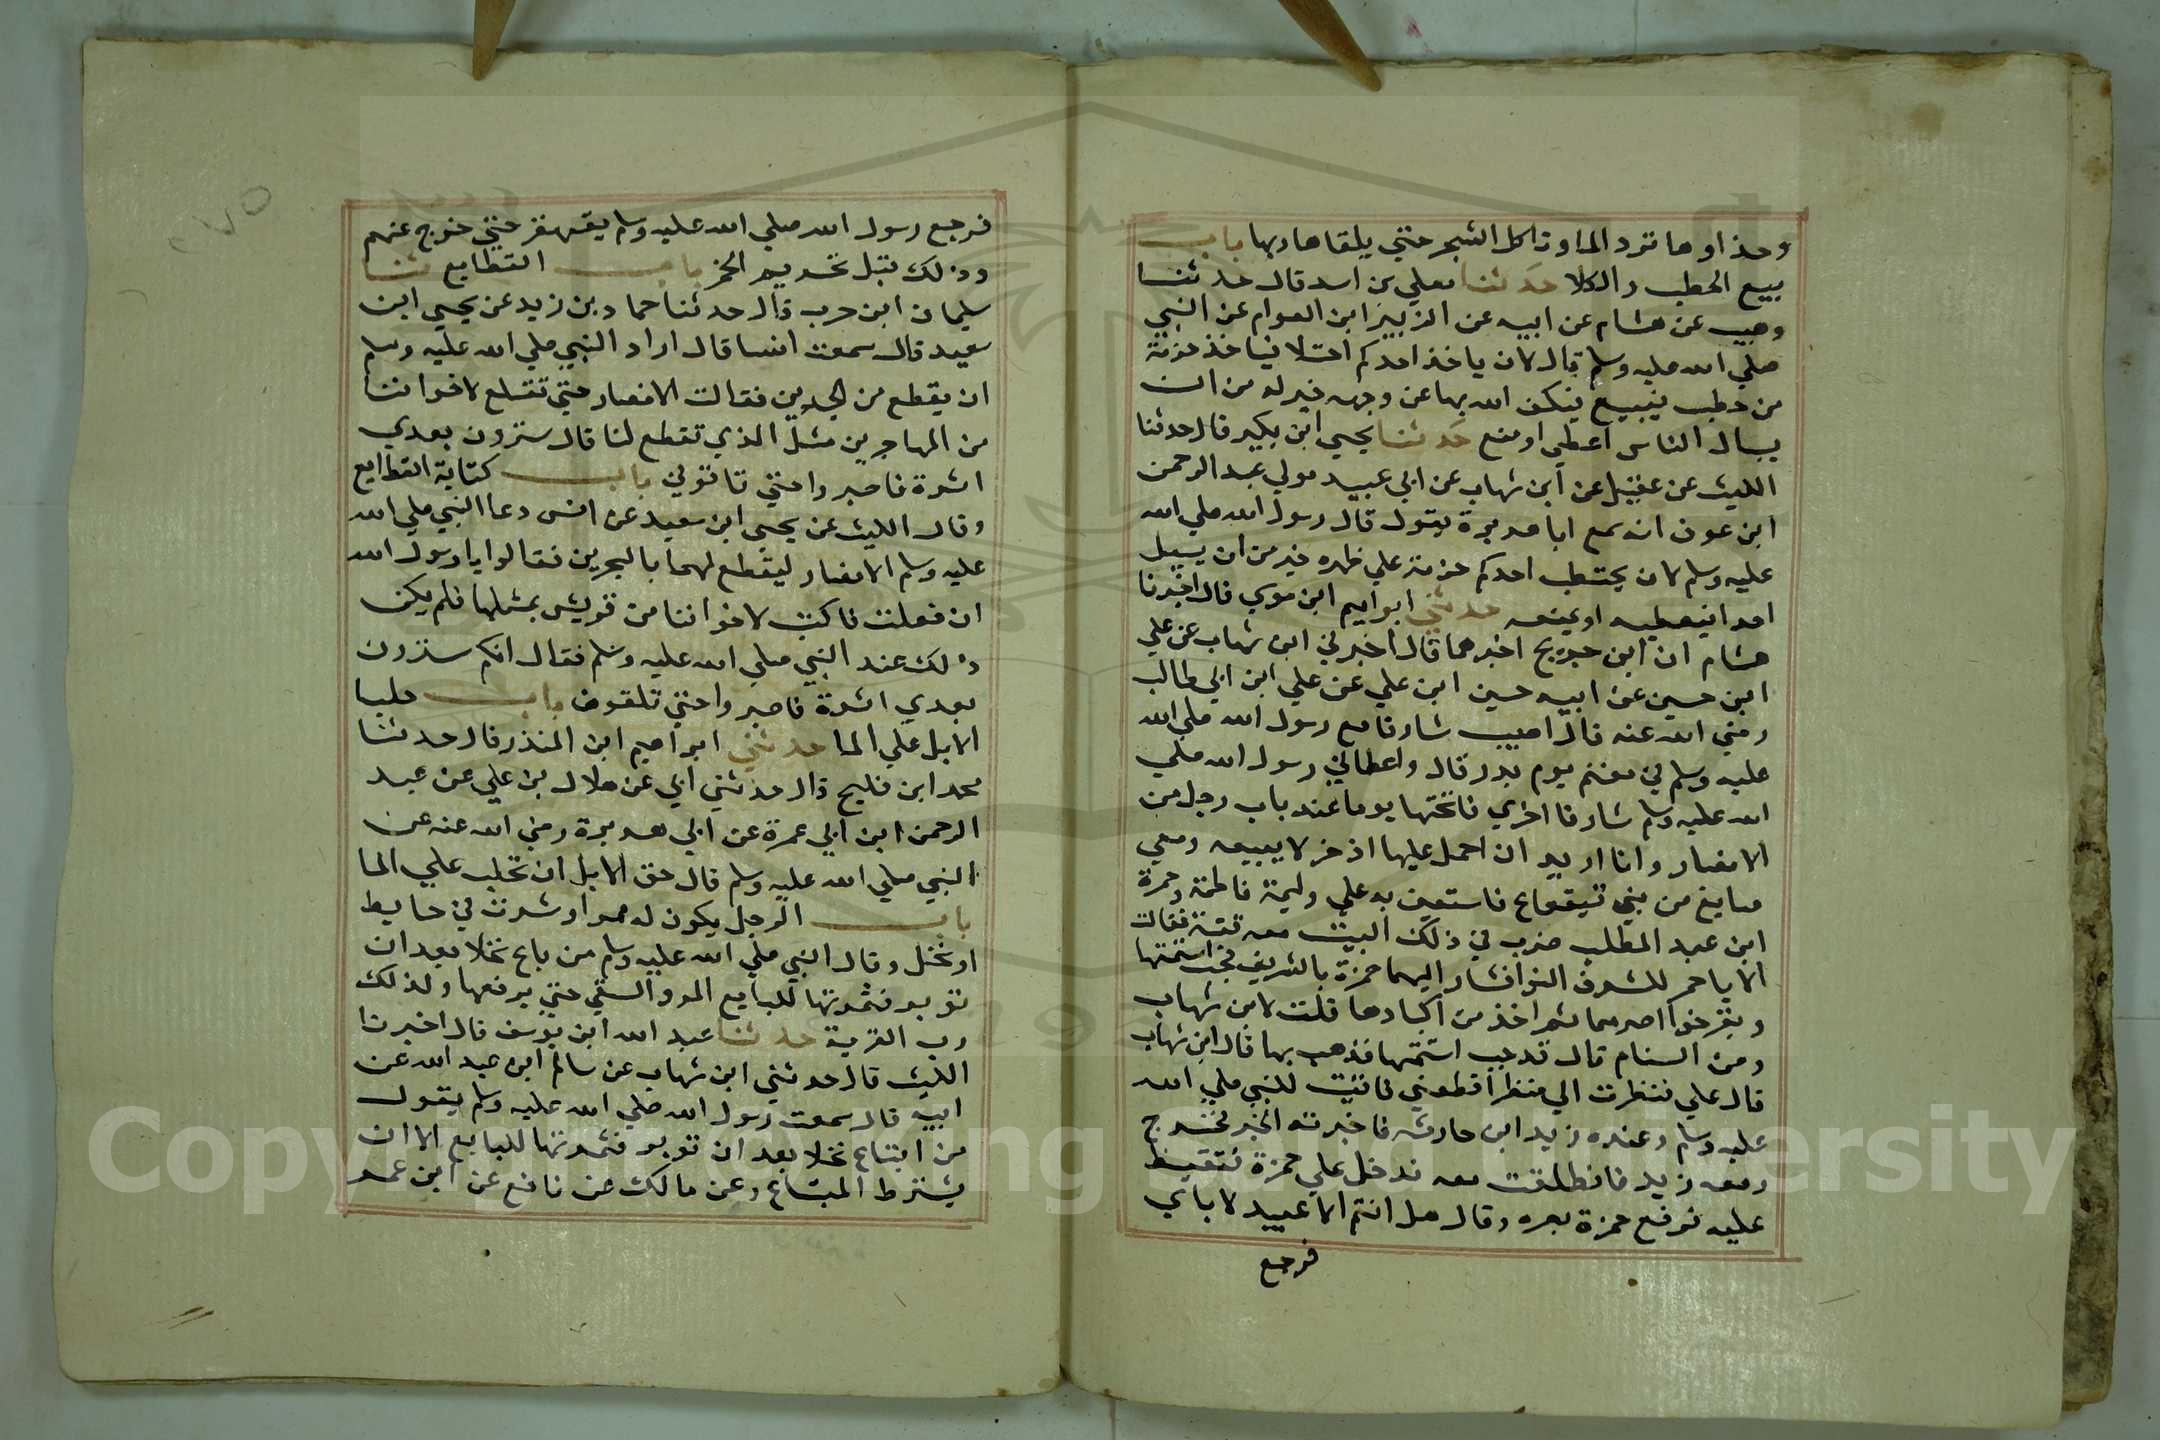 وحذاوها ترد الما وتاكل الشجر حتي يلقاها ربها باب
بيع الحطب والكلا حدثنا معلي بن اسد قال حدثنا
وهيب عن هشام عن ابيه عن الزبير ابن العوام عن النبي
صلي الله عليه وسلم قال لان ياخذ احدكم احبلا فياخذ حزمة
من حطب فيبيع فيكف الله بها عن وجهه خير له من ان
يسال الناس اعطي او منع حدثنا يحيي ابن بكير قال حدثنا
الليث عن عقيل عن ابن شهاب عن ابي عبيد مولي عبد الرحمن
ابن عوف انه سمع ابا هريرة يقول قال رسول الله صلي الله
عليه وسلم لان يحتطب احدكم حزمة علي ظهره خير من ان يسيل
احدا فيعطيه او يمنعه حدثني ابراهيم ابن موسي قال اخبرنا
هشام ان ابن جريج اخبرهما قال اخبرني ابن شهاب عن علي
ابن حسين عن ابيه حسين ابن علي عن علي ابن ابي طالب
رضي الله عنه قال اصبت شارفا مع رسول الله صلي الله
عليه وسلم في مغنم يوم بدر قال واعطاني رسول الله صلي
الله عليه وسلم شارفا اخري فانختها يوما عند باب رجل من
الانصار وانا اريد ان احمل عليها اذخر لا بيعه ومعي
صايغ من بني قينقاع فاستعين به علي وليمة فاطمة وحمزة
ابن عبد المطلب ضرب في ذلك البيت معه قينة فقالت
الا يا حمز للشرف النوا فشار اليهما حمزة بالشريف فجب استمتها
وبقر خواصرهما ثم اخذ من اكبادهما قلت لابن شهاب
ومن السنام قال قد جب استمتها فذهب بها قال ابن شهاب
قال علي فنظرت الي منظر افظعني فاتيت للنبي صلي الله
عليه وسلم وعنده زيد ابن حارثه فاخبرته الخبر فخرج
ومعه زيد فانطلقت معه فدخل علي حمزة فتغيظ
عليه فرفع حمزة بصره وقال هل انتم الا عبيد لاباي
فرجع
فرجع رسول الله صلي الله عليه وسلم يقهقر حتي خرج عنهم
وذلك قبل تحريم الخمر باب القطايع ثنا
سليمان ابن حرب قال حدثنا حماد بن زيد عن يحيي ابن
سعيد قال سمعت انسا قال اراد النبي صلي الله عليه وسلم
ان يقطع من البحرين فقالت الانصار حتي تقطع لاخواننا
من المهاجرين مثل الذي تقطع لنا قال سترون بعدي
اثرة فاصبروا حتي تاتوني باب كتابة القطايع
وقال الليث عن يحيي ابن سعيد عن انس دعا النبي صلي الله
عليه وسلم الانصار ليقطع لهما بالبحرين فقالوا يا رسول الله
ان فعلت فاكتب لاخواننا من قريش بمثلها فلم يكن
ذلك عند النبي صلي الله عليه وسلم فقال انكم سترون
بعدي اثرة فاصبروا حتي تلقوني باب حلب
الابل علي الما حدثني ابراهيم ابن المنذر قال حدثنا
محمد ابن فليح قال حدثني ابي عن هلال بن علي عن عبد
الرحمن ابن ابي عمرة عن ابي هريرة رضي الله عنه عن
النبي صلي الله عليه وسلم قال حق الابل ان تحلب علي الما
باب الرجل يكون له ممر او شرب في حايط
او نخل وقال النبي صلي الله عليه وسلم من باع نخلا بعد ان
توبر فثمرتها للبايع الممر والسقي حتي يرفعها ولذلك
رب العرية حدثنا عبد الله ابن يوسف قال اخبرنا
الليث قال حدثني ابن شهاب عن سالم ابن عبد الله عن
ابيه قال سمعت رسول الله صلي الله عليه وسلم يقول
من ابتاع نخلا بعد ان توبر فثمرتها للبايع الا ان
يشترط المبتاع وعن مالك عن نافع عن ابن عمر
٢٧٥
Copyright © King Saud University